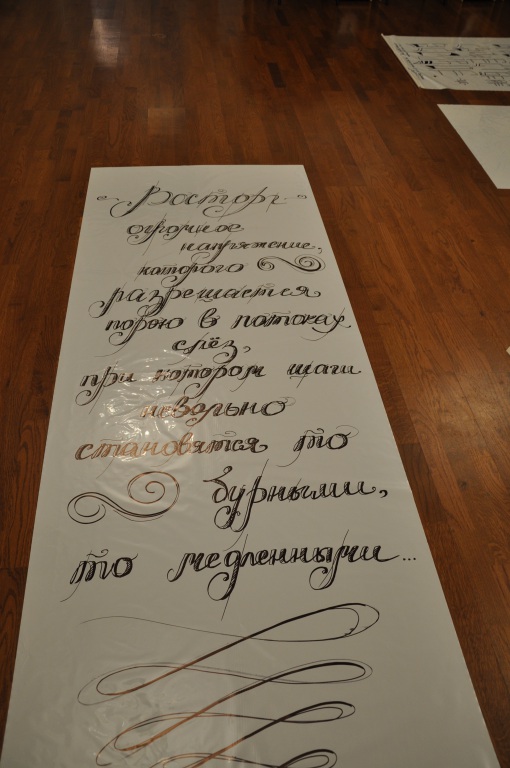 Восторг
огромное
напряжение,
которого
разрешается
порою в потоках
слёз,
при котором шаги
невольно
становятся то
бурными,
то медленными...